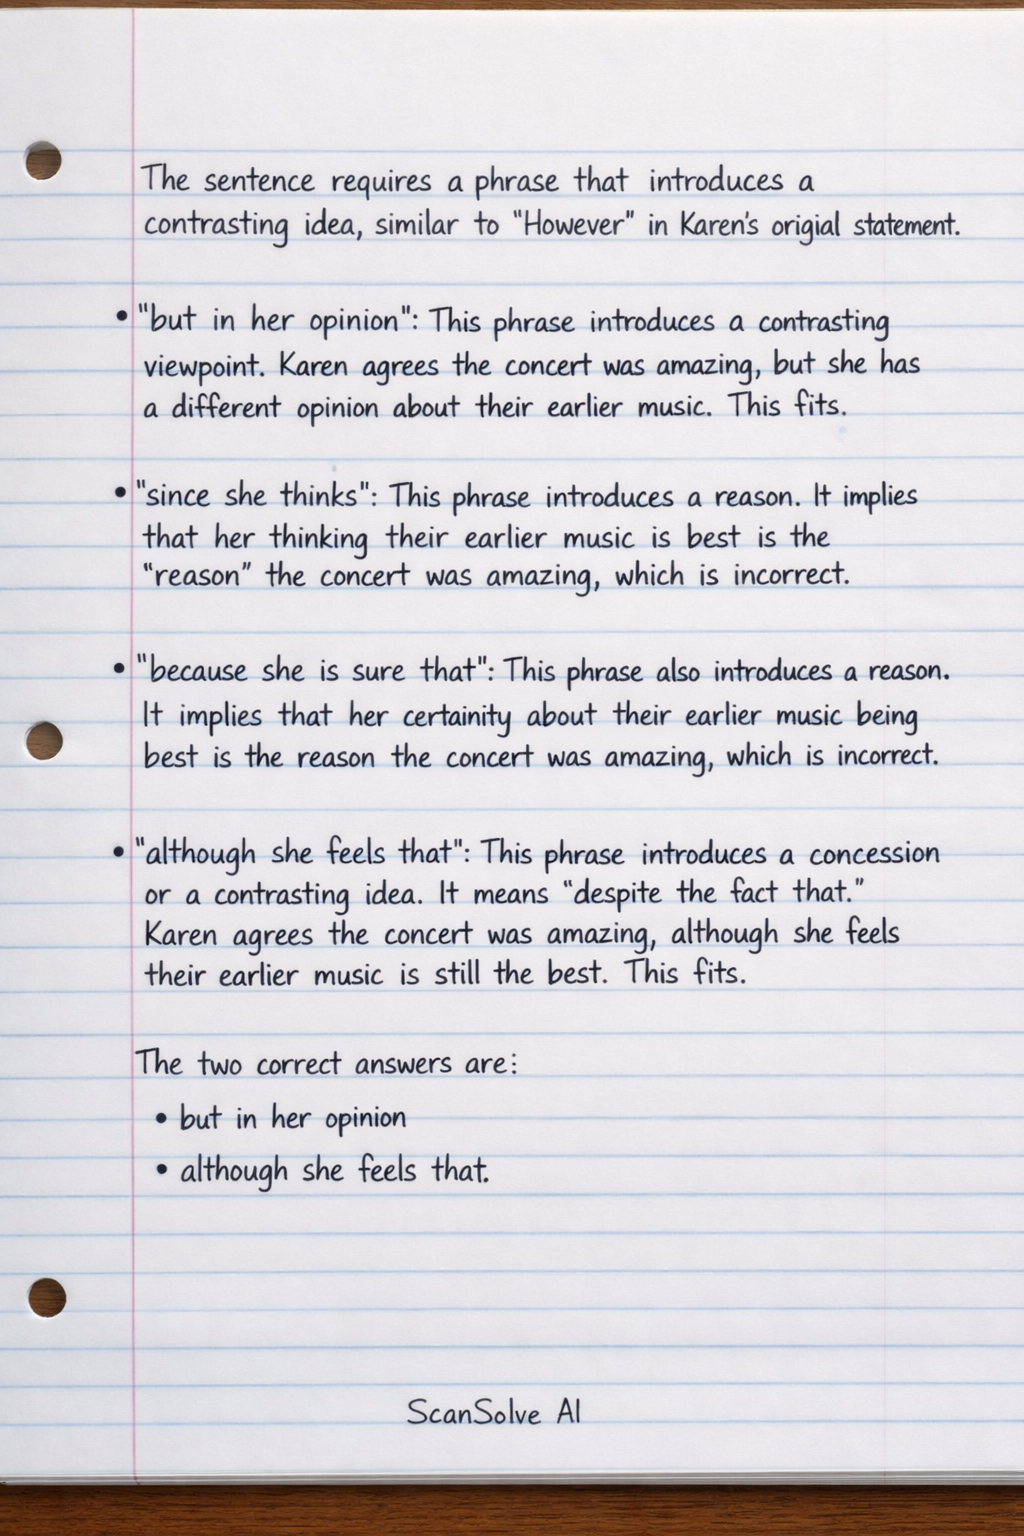 The sentence requires a phrase that introduces a
contrasting idea, similar to "However" in Karen's origial statement.
• "but in her opinion": This phrase introduces a contrasting
viewpoint. Karen agrees the concert was amazing, but she has
a different opinion about their earlier music. This fits.
• "since she thinks": This phrase introduces a reason. It implies
that her thinking their earlier music is best is the
"reason" the concert was amazing, which is incorrect.
• "because she is sure that": This phrase also introduces a reason.
It implies that her certainity about their earlier music being
best is the reason the concert was amazing, which is incorrect.
• "although she feels that": This phrase introduces a concession
or a contrasting idea. It means "despite the fact that."
Karen agrees the concert was amazing, although she feels
their earlier music is still the best. This fits.
The two correct answers are:
• but in her opinion
• although she feels that.
ScanSolve AI